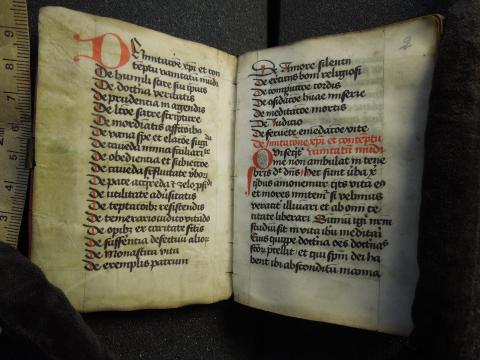 De Imitatoe xpi et con
teptu vanitatu mudi
De humili sate sui ipius
De doctna veritatis
De prudentia in agendis
De lcoe sacre scripture
De mordiatis affectoibꝫ
De vana spe et elacoe fugi
De caveda nimia familiari
De obedientia et subiectoe
De caveda sufluitate vboꝝ
De pace acqreda et zelo pfi
De utilitate adusitatis
De teptatoibꝫ resistendis
De temerario iuditio vitado
De opibꝫ ex caritate fctis
De sufferentia defectuu alioꝝ
De monastica vita
De exemplis patrum
De Amore silentii
De exercitiis boni religiosi
De compunctoe cordis
De osideratoe huae miserie
De meditatoe mortis
De Iuditio
De fervete emedatoe vite
De imitatione xpi et conteptu
vanitatu mudi
Qui sequit
me non ambulat in tene
bris dt dns hec sunt vba x
quibus amonemur qtus vita ei
et mores imitem si velimus
veracit illuiari et ab omi ce
citate liberari Sumu igit nrm
studiu sit in vita ihu meditari
Eius quippe doctna oes doctnas
scoꝝ pcellit et qui spm dei ha
bent ibi absconditu manna